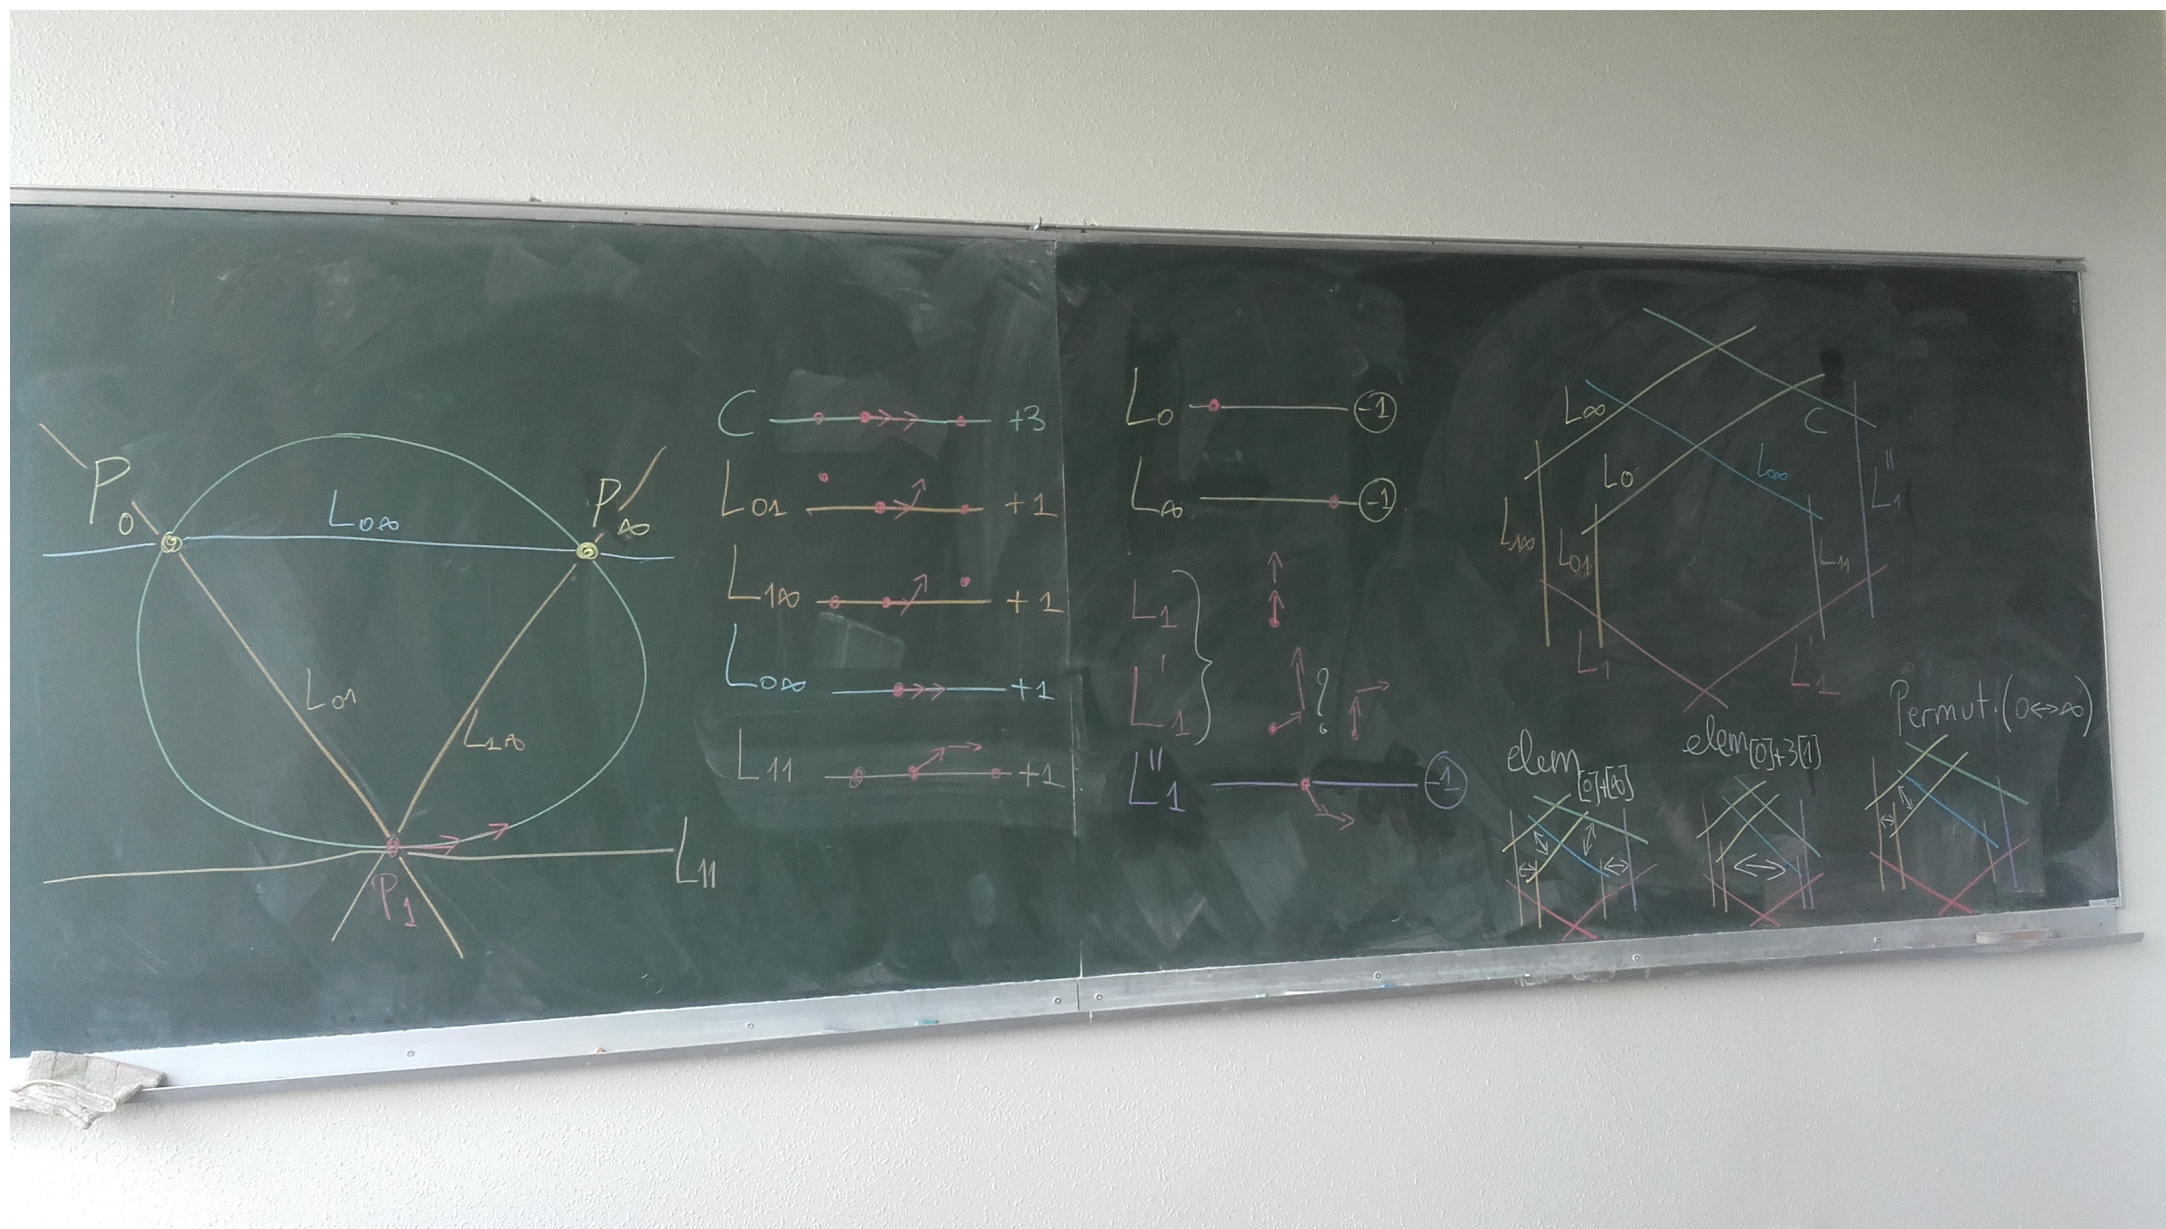 P₀
P∞
L₀∞
L₀₁
L₁∞
P₁
L₁₁
C +3
L₀₁ +1
L₁∞ +1
L₀∞ +1
L₁₁ +1
L₀ -1
L∞ -1
L₁
L'₁ ?
L''₁ -1
L∞
C
L₀
L₀∞
L''₁
L₁∞
L₀₁
L₁₁
L₁
L'₁
elem[0]+[∞]
elem[0]+3[1]
Permut.(0↔∞)